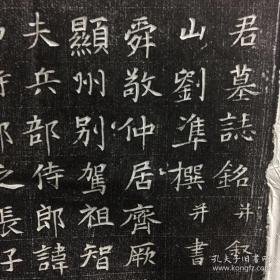 君墓誌銘并叙
山劉準撰并書
舜敬仲居齊厥
顯州别駕祖智
夫兵部侍郎諱
之長子
孔夫子旧书网